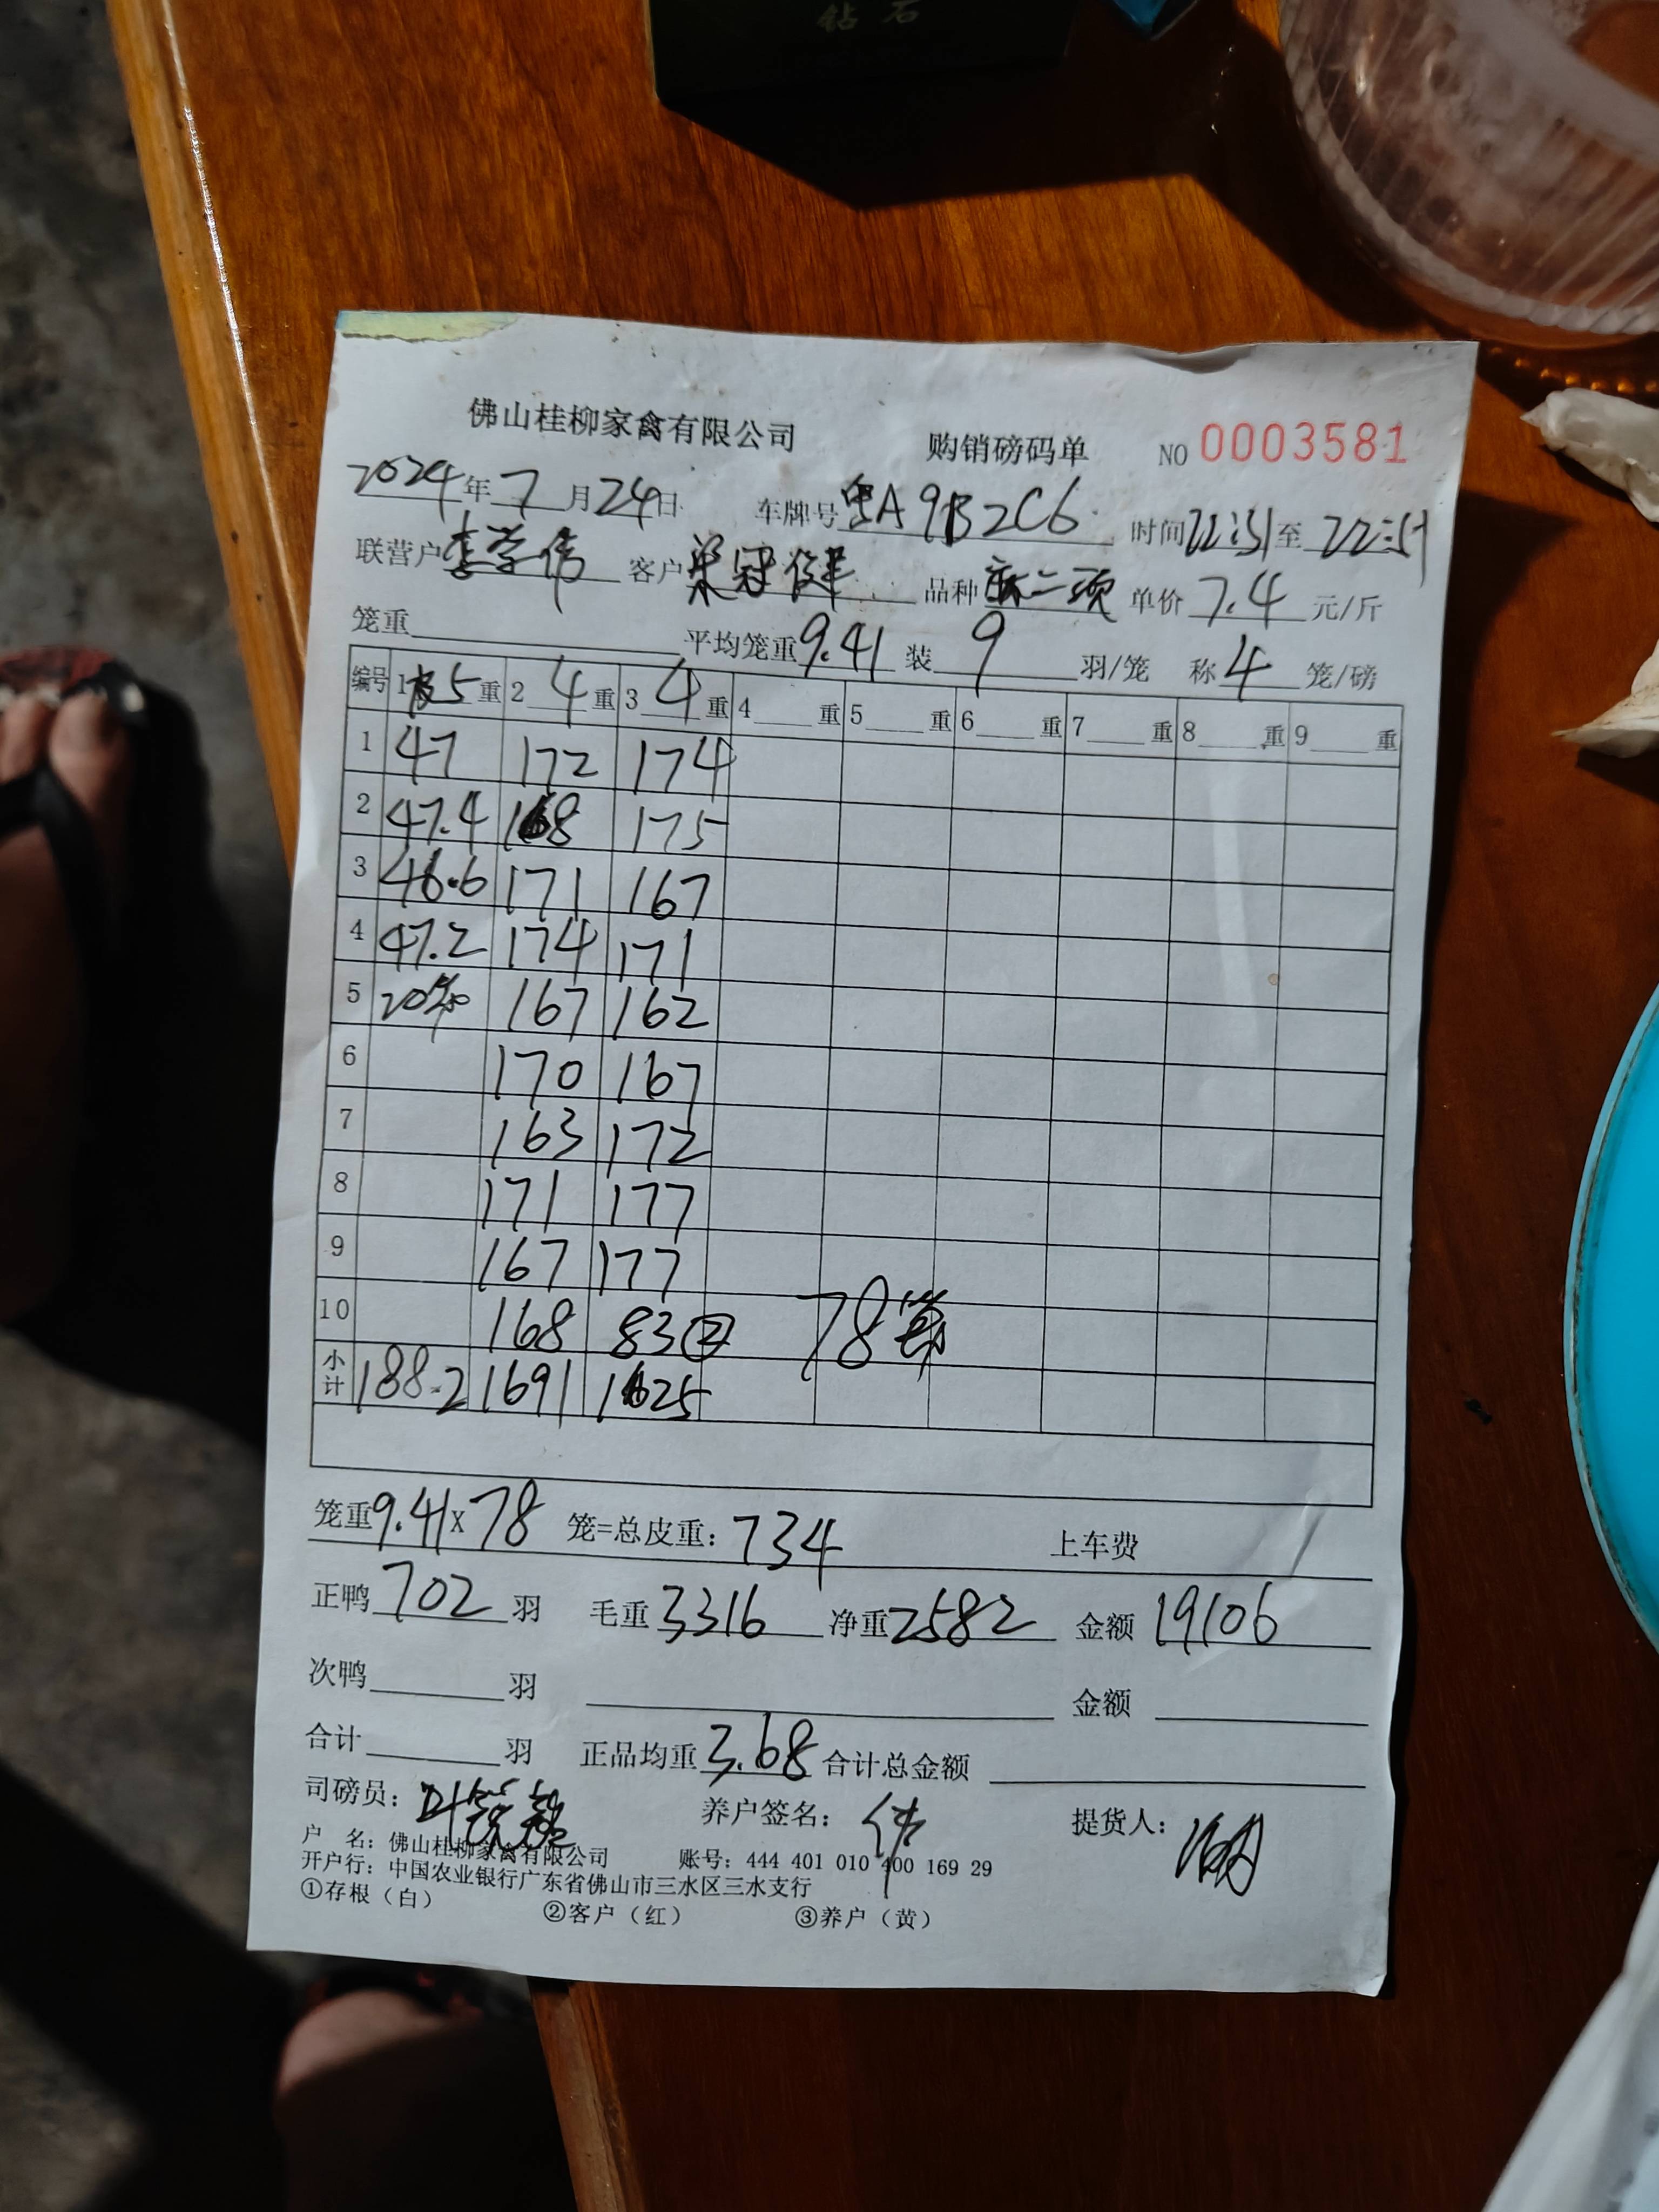 钻石
佛山桂柳家禽有限公司 购销磅码单 NO 0003581
2024年7月24日 车牌号粤A9B2C6 时间22:51至22:51
联营户李学伟 客户梁冠健 品种麻二项 单价7.4元/斤
笼重 平均笼重9.41装9羽/笼 称4笼/磅
编号 1皮5重 2 4重 3 4重 4 重 5 重 6 重 7 重 8 重 9 重
1 47 172 174
2 47.4 168 175
3 46.6 171 167
4 47.2 174 171
5 20笼 167 162
6 170 167
7 163 172
8 171 177
9 167 177
10 168 83② 78笼
小计 188.2 1691 1625
笼重9.41x78笼=总皮重:734 上车费
正鸭702羽 毛重3316净重2582 金额19106
次鸭 羽 金额
合计 羽 正品均重3.68合计总金额
司磅员: 养户签名:伟 提货人:
户 名:佛山桂柳家禽有限公司 账号:444 401 010 400 169 29
开户行:中国农业银行广东省佛山市三水区三水支行
①存根(白) ②客户(红) ③养户(黄)